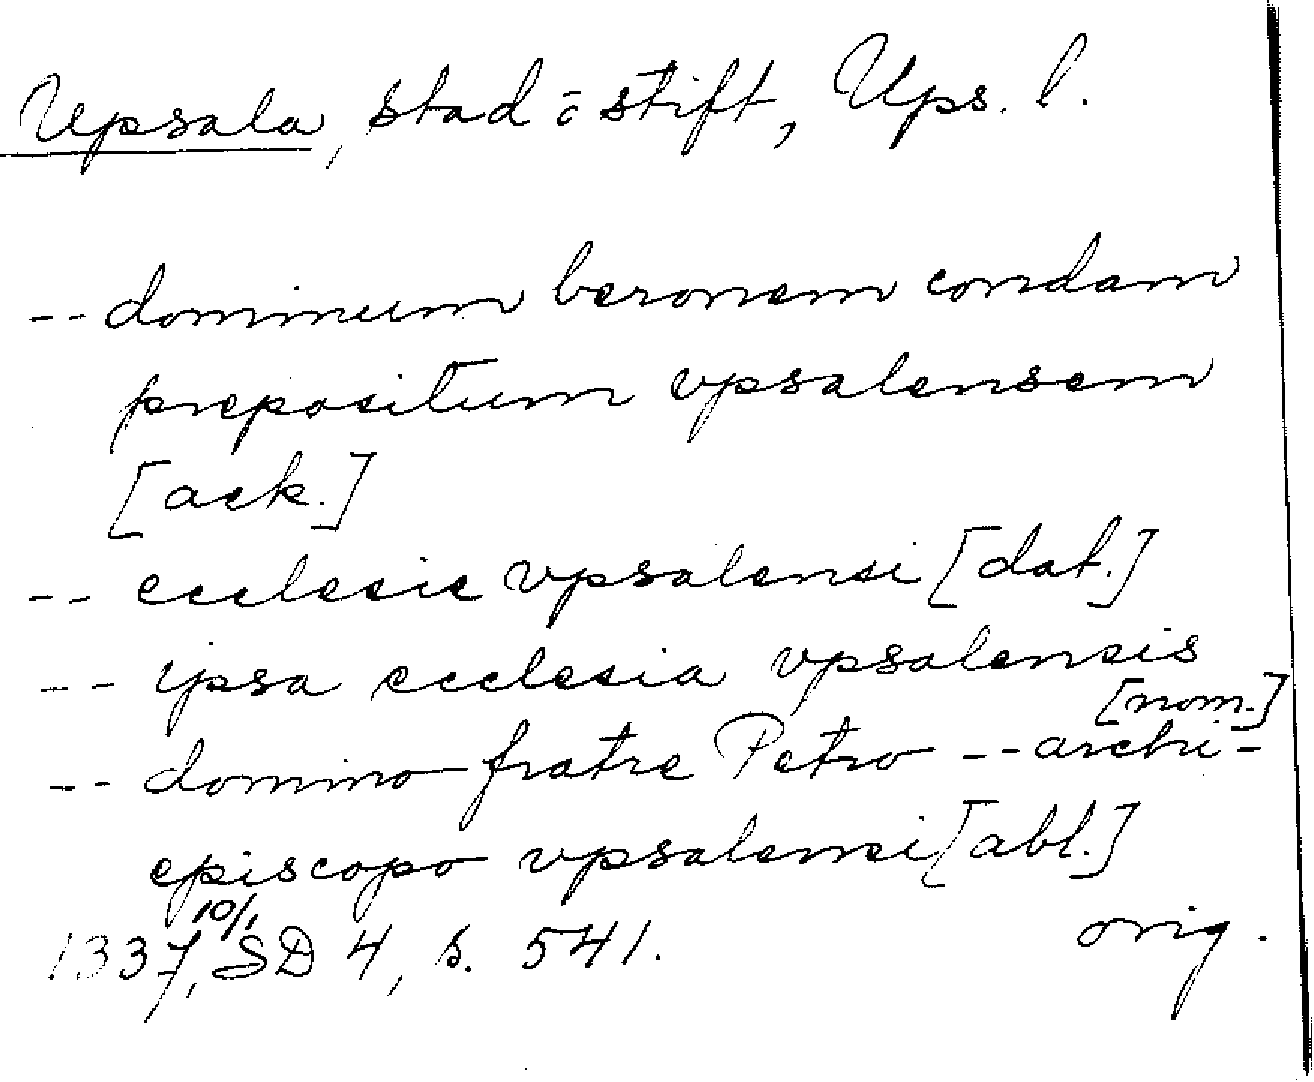 Upsala, stad o stift, Ups. l.
-- dominum beronem condam
prepositum vpsalensem
[ack.]
-- ecclesie vpsalensi [dat.]
-- ipsa ecclesia vpsalensis
[nom.]
-- domino fratre Petro -- archi-
episcopo vpsalensi [abl.]
1337 10/1, SD 4, s. 541. orig.